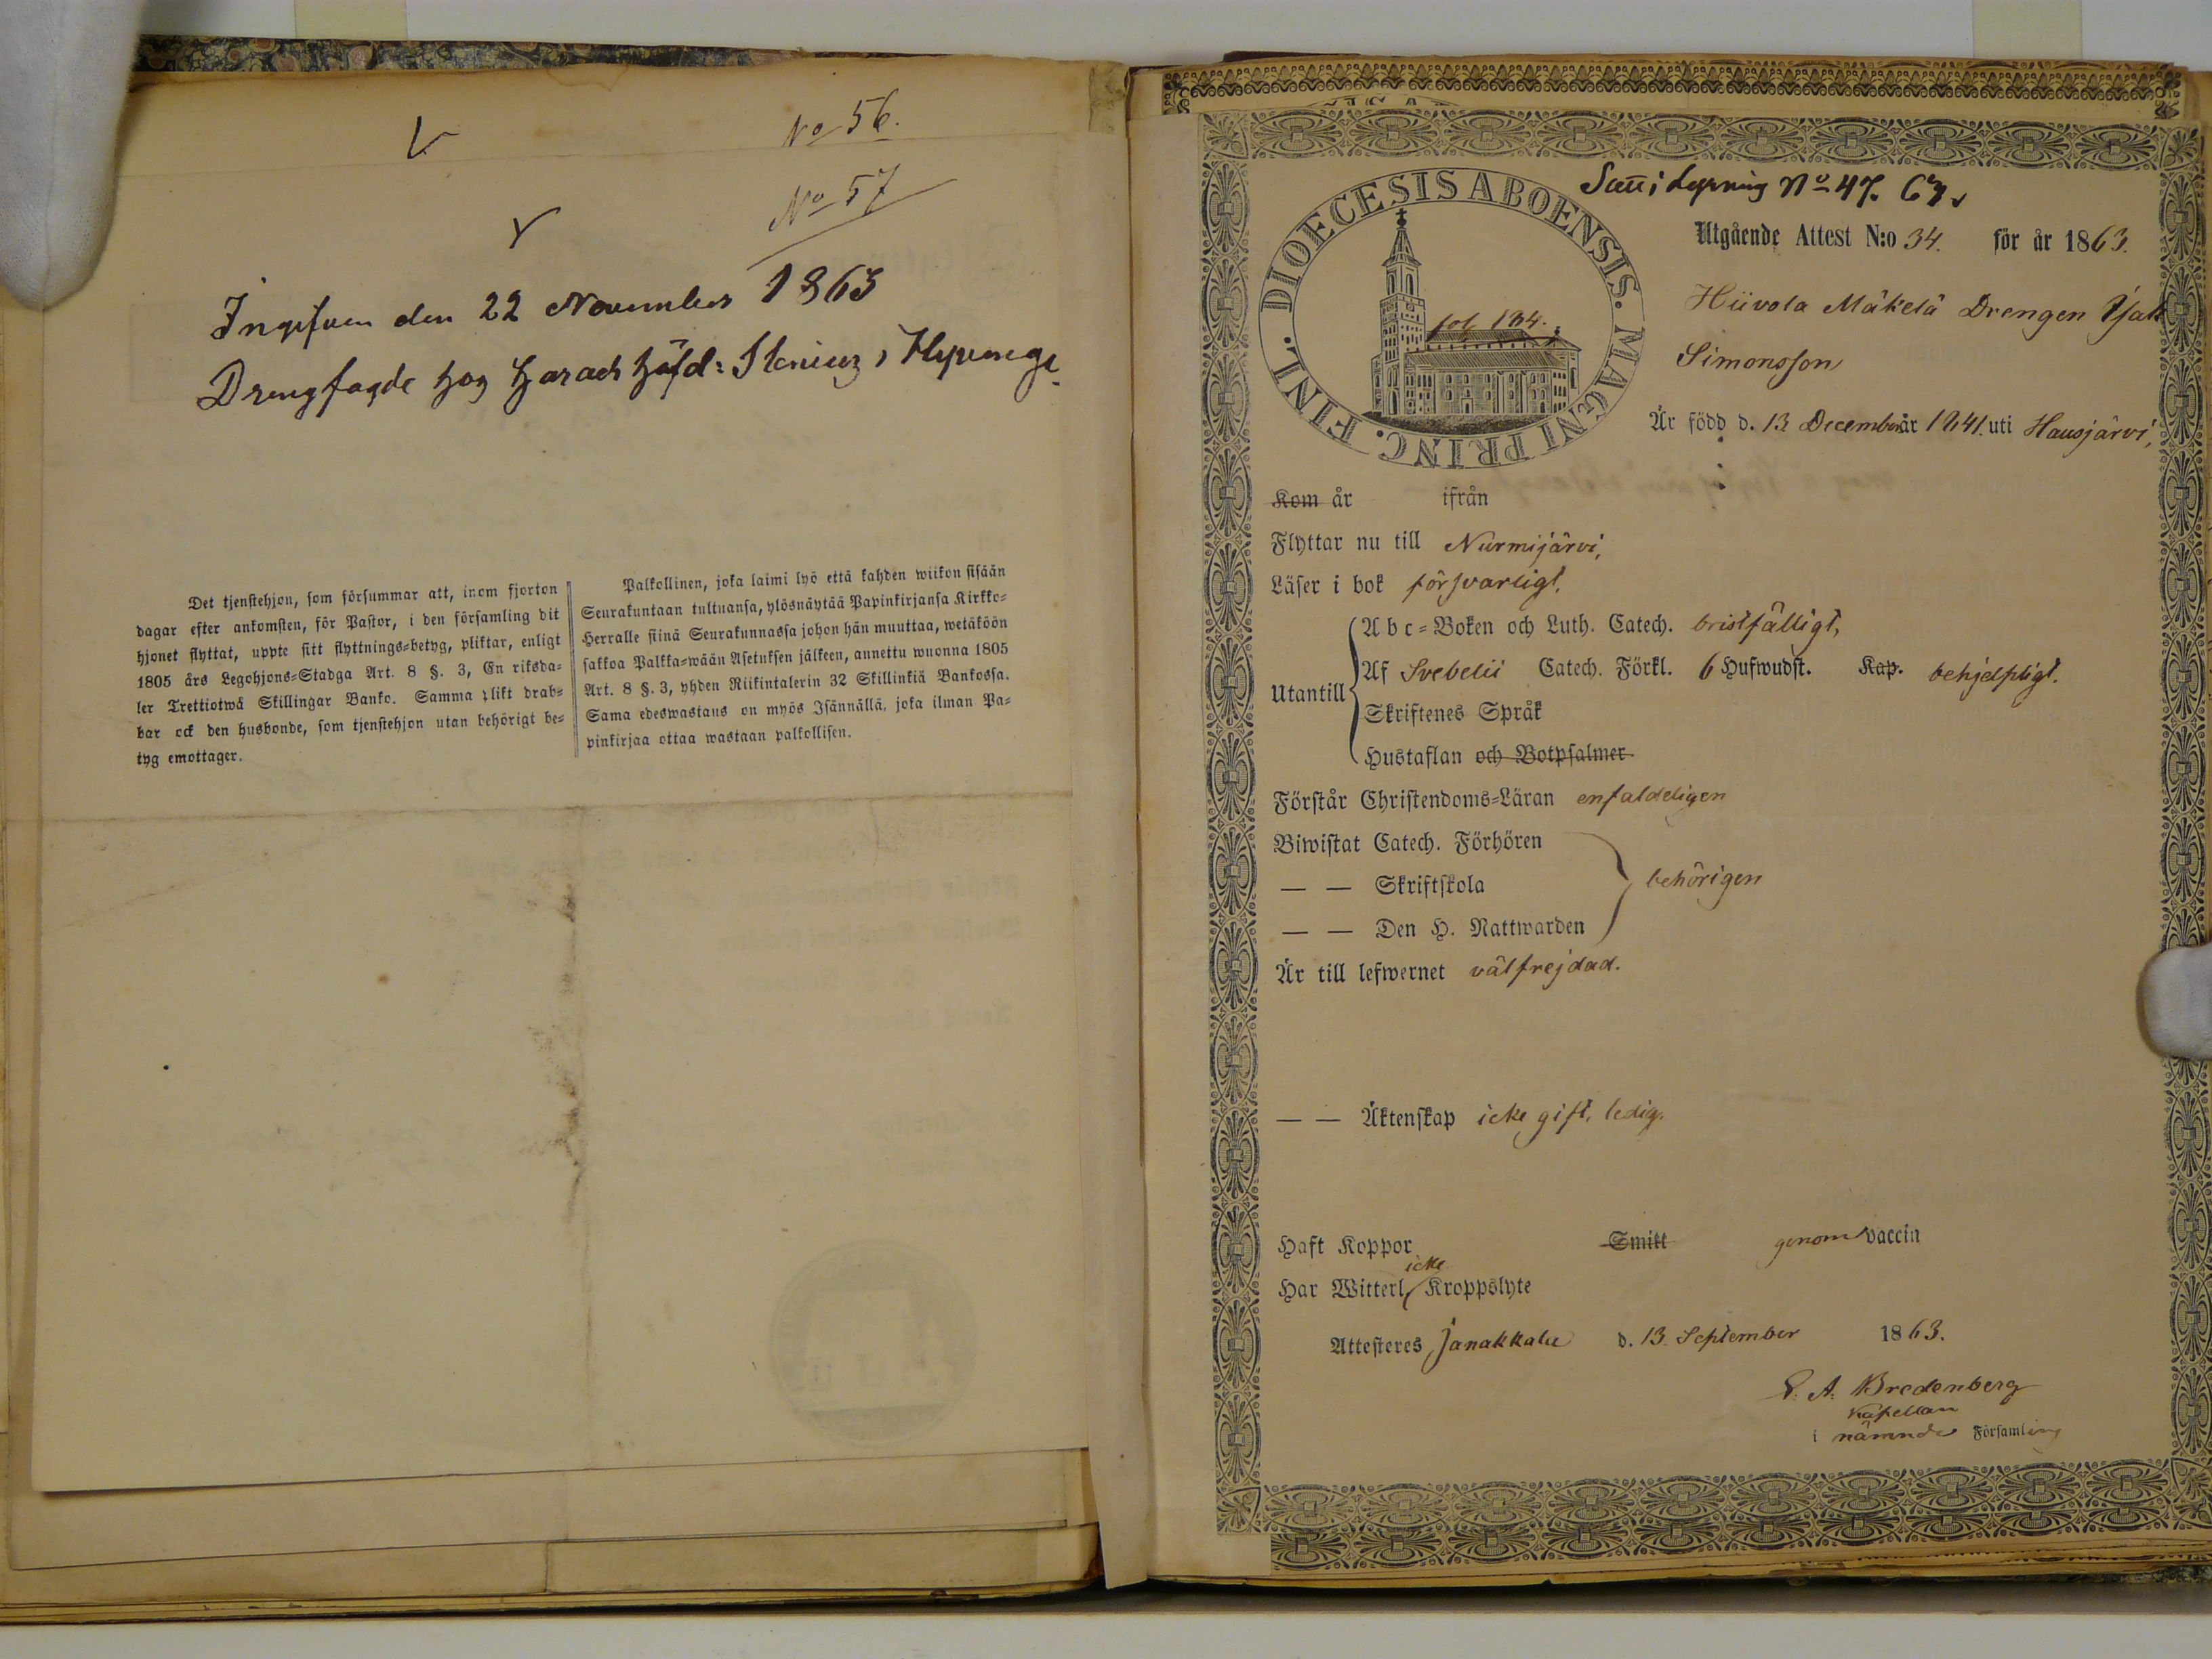 No 56.
No 57
Ingifven den 22 November 1863
Drengfogde hos Häradshöfd: Stenius, Hyvinge
Det tjenstehjon, som försummar att, inom fjorton
dagar efter ankomsten, för Pastor, i den församling dit
hjonet flyttat, uppte sitt flyttnings-betyg, pliktar, enligt
1805 års Legohjons-Stadga Art. 8 §. 3, En riksda-
ler Trettiotwå Skillingar Banko. Samma plikt drab-
bar ock den husbonde, som tjenstehjon utan behörigt be-
tyg emottager.
Palkollinen, joka laimi lyö että kahden wiikon sisään
Seurakuntaan tultuansa, ylösnäytää Papinkirjansa Kirkko-
Herralle siinä Seurakunnassa johon hän muuttaa, wetäköön
sakkoa Palkka-wään Asetuksen jälkeen, annettu wuonna 1805
Art. 8 §. 3, yhden Riikintalerin 32 Skillinkiä Bankossa.
Sama edeswastaus on myös Isännällä, joka ilman Pa-
pinkirjaa ottaa wastaan palkollisen.
DIOECESIS ABOENSIS. MAGNI PRINC. FINL.
fol 134.
Lysning No 47. 63.
Utgående Attest N:o 34. för år 1863.
Hiivola Mäkelä Drengen Isak
Simonsson
Är född d. 13 December år 1841. uti Hausjärvi,
Kom år ifrån
Flyttar nu till Nurmijärvi,
Läser i bok försvarligt,
Utantill
Abc-Boken och Luth. Catech. bristfälligt,
Af Svebelii Catech. Förkl. 6 Hufwudst. Kap. behjelpligt.
Skriftenes Språk
Hustaflan och Botpsalmer
Förstår Christendoms-Läran enfaldeligen
Biwistat Catech. Förhören
— — Skriftskola behörigen
— — Den H. Nattwarden
Är till lefwernet välfrejdad.
— — Äktenskap icke gift, ledig.
Haft Koppor Smitt genom vaccin
Har Witterl. icke Kroppslyte
Attesteres Janakkala d. 13 September 1863.
A. Bredenberg
Kapellan
i nämnde Församling